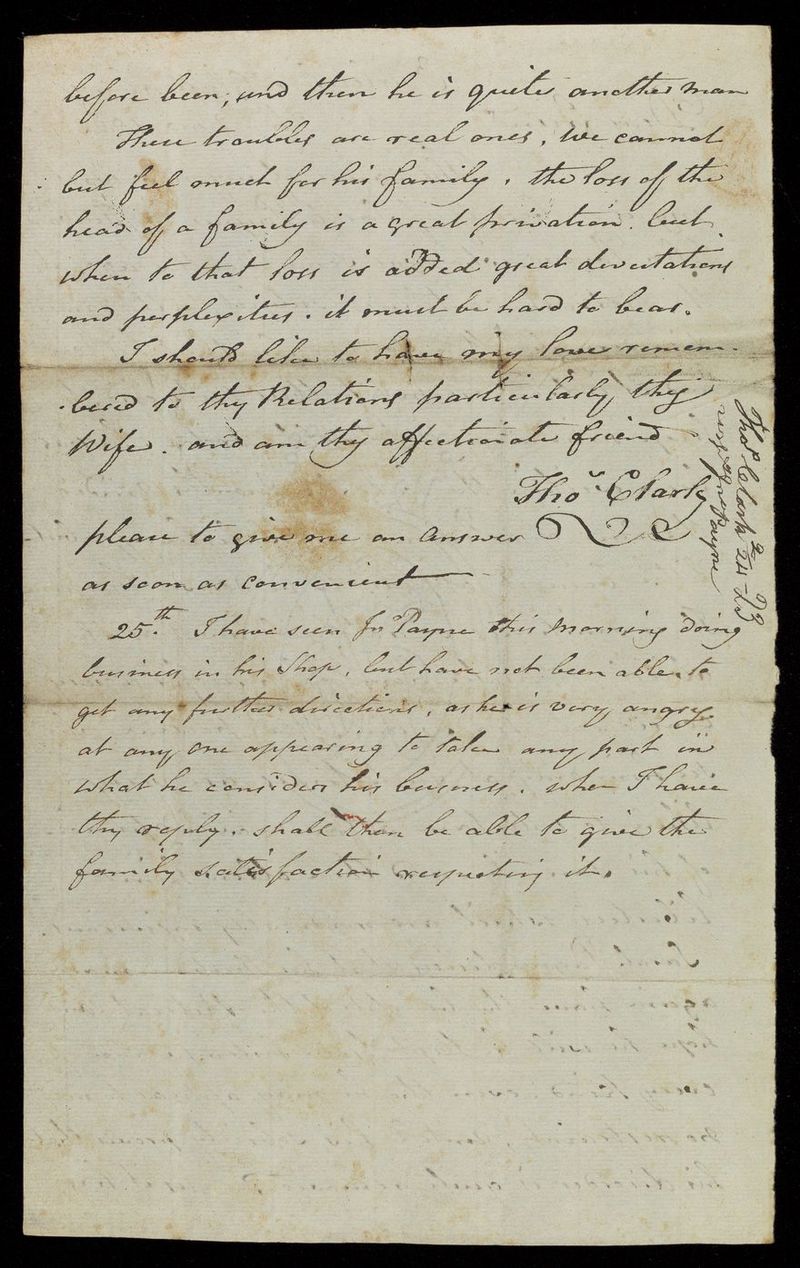 before been, and then he is quite another man
These troubles are real ones, we cannot
but feel much for his family, the loss of the
head of a family is a great privation. but
when to that loss is added great devastations
and perplexities. it must be hard to bear.
I should like to have my love remem-
-bered to thy Relations particularly thy
Wife. and am thy affectionate friend
Thos. Clark
please to give me an answer
as soon as convenient
25th. I have seen Jn Payne this morning doing
business in his Shop, but have not been able to
get any further directions, as he is very angry
at any one appearing to take any part in
what he considers his business. when I have
thy reply. shall then be able to give the
family satisfaction respecting it.
Thos Clark
Payne